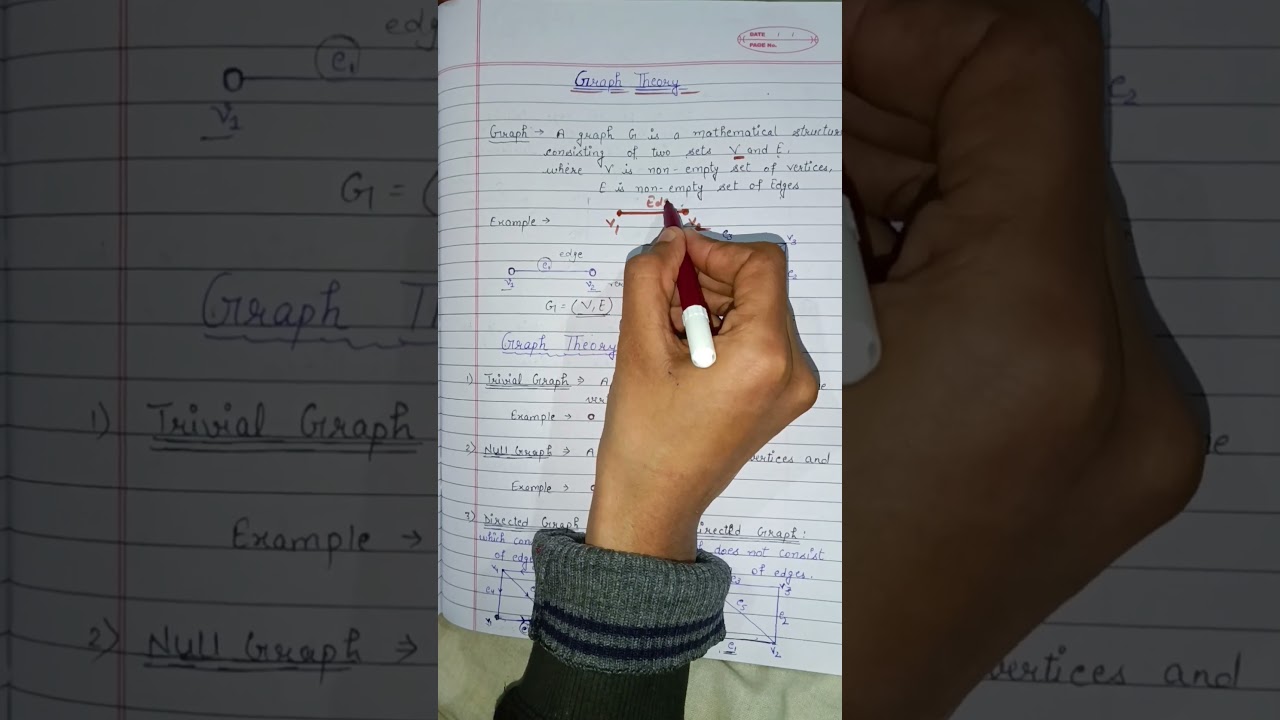 DATE / /
PAGE No.
Graph Theory
Graph → A graph G is a mathematical structur
consisting of two sets V and E,
where V is non-empty set of vertices,
E is non-empty set of Edges
Ed
Example →
V1
e3
V3
edge
e1
e2
V1
V2
G = (V, E)
Graph Theory
1) Trivial Graph ⇒ A
Example →
2) Null Graph ⇒ A vertices and
Example →
3) Directed Graph Graph:
which does not consist
of edge of edges.
e3
V3
e4
e5
e2
e1
V2